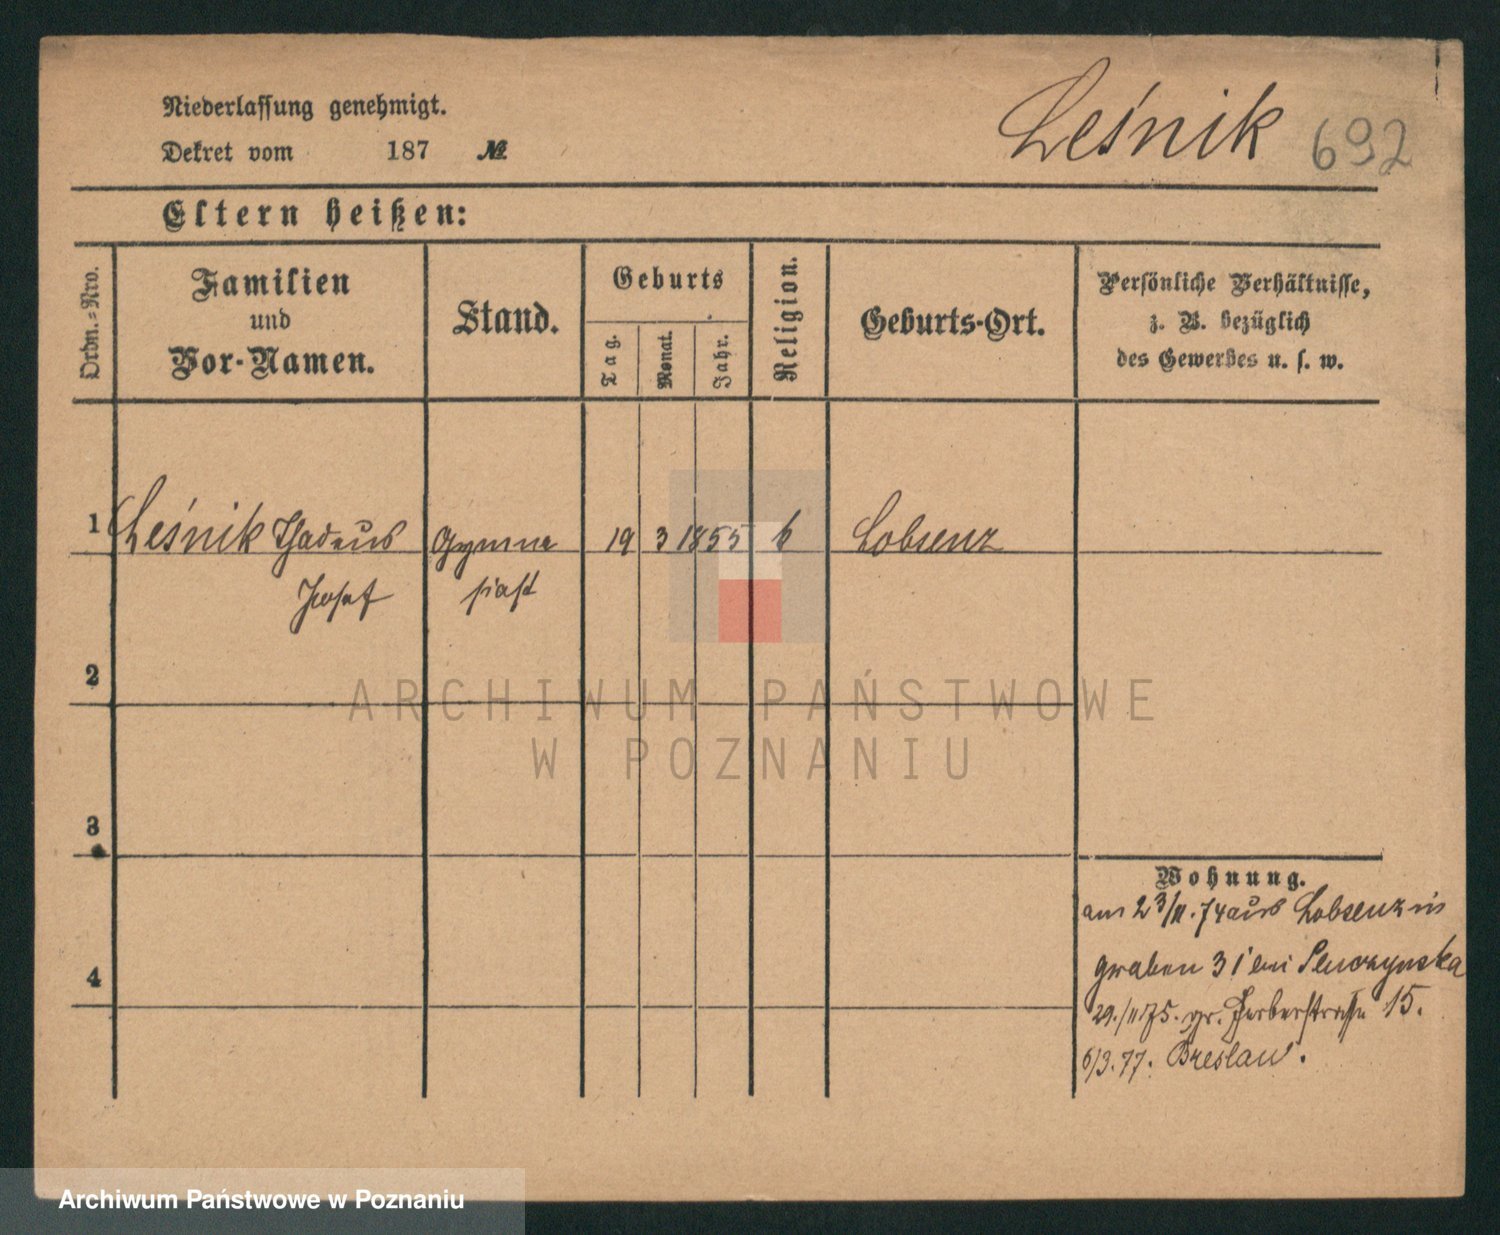 Niederlassung genehmigt.
Dekret vom 187 №
Leśnik 692
Eltern heißen:
Ordn.=Nro.
Familien
und
Vor-Namen.
Stand.
Geburts
Tag.
Monat.
Jahr.
Religion.
Geburts-Ort.
Persönliche Verhältnisse,
z. B. bezüglich
des Gewerbes u. s. w.
1 Leśnik Thadeus Gymna 19 3 1855 k Lobsenz
Josef siast
2
3
4
Wohnung.
am 23/11.74 aus Lobsenz in
graben 31 bei
29./11 75. gr. Gerberstrasse 15.
6/3.77. Breslau.
ARCHIWUM PAŃSTWOWE
W POZNANIU
Archiwum Państwowe w Poznaniu